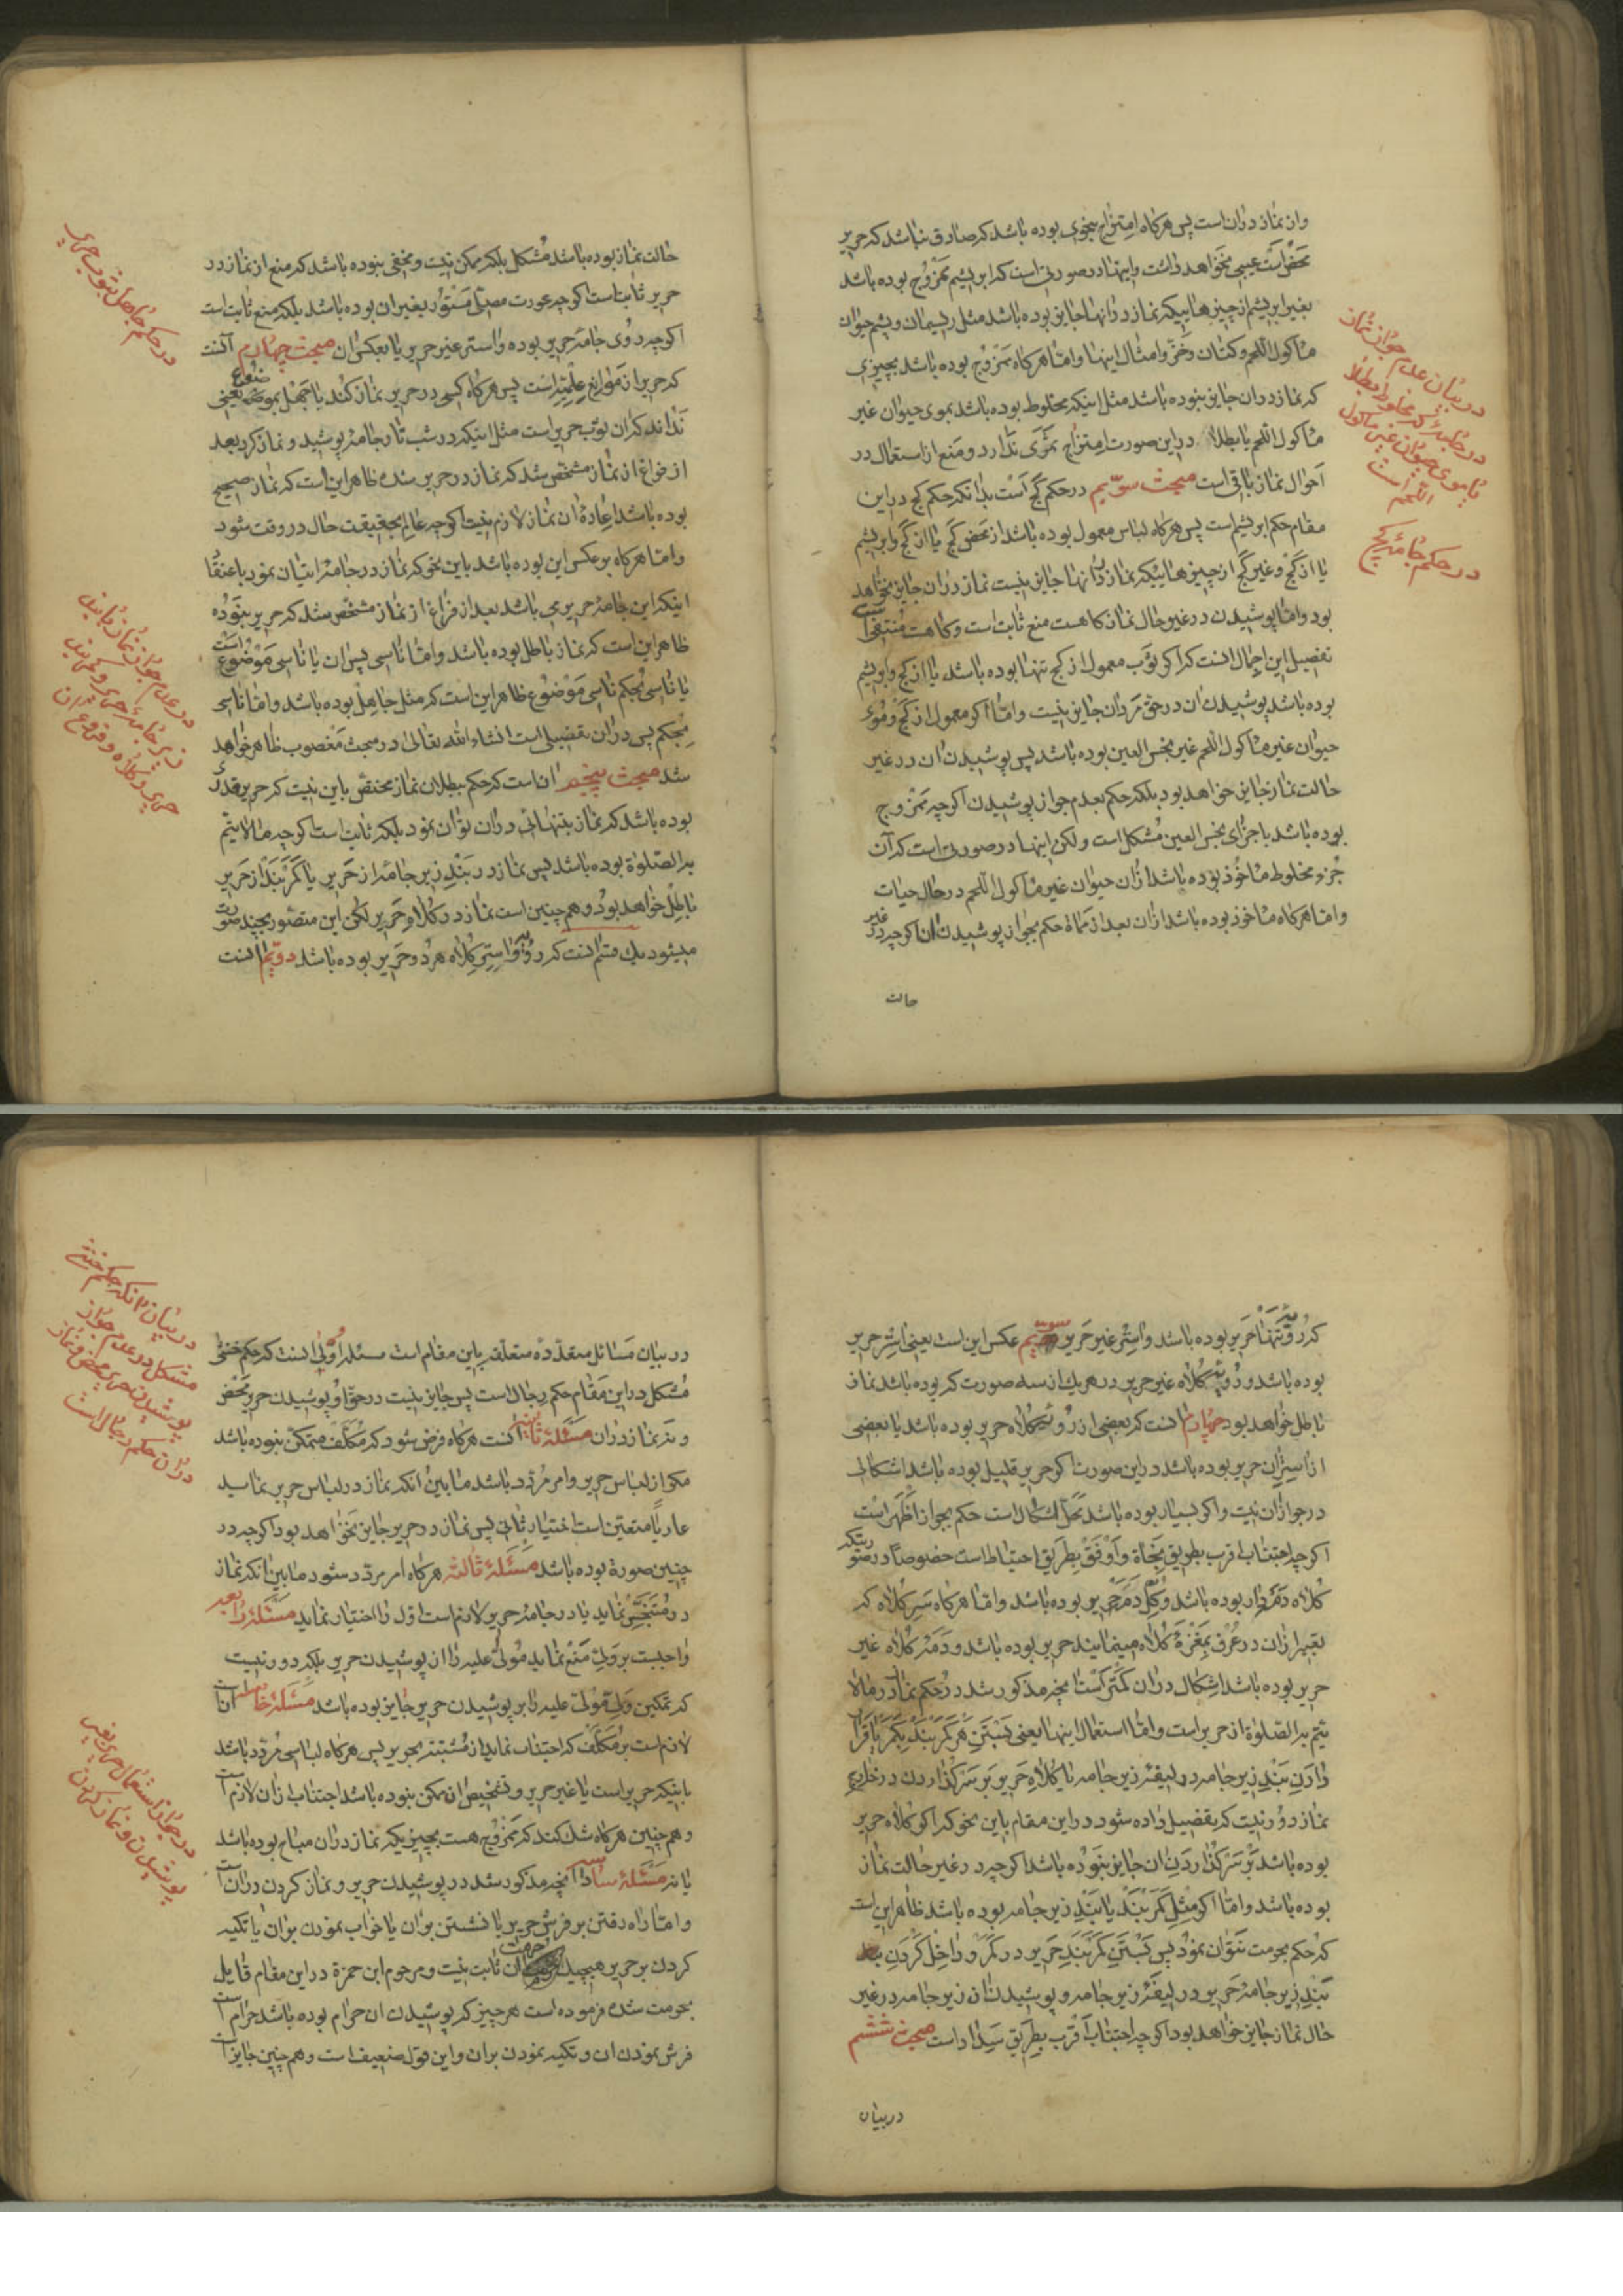 واز نماز دران است پس هرگاه امتزاج بنحوی بوده باشد که صادق نباشد که حریر
محض است عیبی نخواهد داشت واینها در صورتی است که ابریشم ممزوج بوده باشد
بغیر ابریشم از چیزهاییکه نماز در آنها جایز بوده باشد مثل ریسمان وپشم حیوان
مأکول اللحم وکتان وخز وامثال اینها واما هرگاه ممزوج بوده باشد بچیزی
که نماز دران جایز نبوده باشد مثل اینکه مخلوط بوده باشد بموی حیوان غیر
مأکول اللحم یا بطلا در این صورت امتزاج ثمری ندارد ومنع از استعمال در
احوال نماز باقی است مبحث سویم در حکم کج است بدانکه حکم کج در این
مقام حکم ابریشم است پس هرگاه لباس معمول بوده باشد از محض کج یا از کج وابریشم
یا از کج وغیر کج از چیزهاییکه نماز در آنها جایز نیست نماز دران جایز نخواهد
بود واما پوشیدن در غیر حال نماز گاه هست منع ثابت است وگاه هست منتفی است
تفصیل این اجمال انست که اگر ثوب معمول از کج تنها بوده باشد یا از کج وابریشم
بوده باشد پوشیدن ان در حق مردان جایز نیست واما اگر معمول از کج وموی
حیوان غیر مأکول اللحم غیر نجس العین بوده باشد پس پوشیدن ان در غیر
حالت نماز جایز خواهد بود بلکه حکم بعدم جواز پوشیدن اگرچه ممزوج
بوده باشد باجزای نجس العین مشکل است ولکن اینها در صورتی است که آن
جزء مخلوط مأخوذ بوده باشد ازان حیوان غیر مأکول اللحم در حال حیات
واما هرگاه مأخوذ بوده باشد ازان بعد از مماة حکم بجواز پوشیدن ان اگرچه در غیر
حالت
در بیان عدم جواز نماز
در جامهٔ که مخلوط بطلا
یا موی حیوان غیر ماکول
اللحم است
در حکم جامهٔ کج
حالت نماز بوده باشد مشکل بلکه ممکن نیست ومخفی نبوده باشد که منع از نماز در
حریر ثابت است اگرچه عورت مصلی مستور بغیر ان بوده باشد بلکه منع ثابت است
اگرچه روی جامه حریر بوده واستر غیر حریر یا بعکس ان مبحث چهارم آنست
که حریر از موانع علمیه است پس هرگاه کسی در حریر نماز کند با جهل بموضوع یعنی
نداند که ان ثوب حریر است مثل اینکه در شب تار جامهٔ پوشید ونماز کرد بعد
از فراغ از نماز مشخص شد که نماز در حریر شده ظاهر این است که نماز صحیح
بوده باشد اعادهٔ ان نماز لازم نیست اگرچه عالم بحقیقت حال در وقت شود
واما هرگاه برعکس این بوده باشد باین نحو که نماز در جامهٔ اتیان نمود باعتقاد
اینکه این جامه حریر می باشد بعد از فراغ از نماز مشخص شد که حریر نبوده
ظاهر این است که نماز باطل بوده باشد واما ناسی پس ان یا ناسی موضوع است
یا ناسی حکم ناسی موضوع ظاهر این است که مثل جاهل بوده باشد واما ناسی
حکم پس دران تفصیلی است انشاء الله تعالی در مبحث مغصوب ظاهر خواهد
شد مبحث پنجم ان است که حکم ببطلان نماز مختص باین نیست که حریر قدری
بوده باشد که نماز بتنهائی دران توان نمود بلکه ثابت است اگرچه مما لا یتم
به الصلوة بوده باشد پس نماز در بند زیر جامه از حریر یا کمربند از حریر
باطل خواهد بود وهم چنین است نماز در کلاه حریر لکن این متصور بچند صورت
میشود یک قسم انست که رویه واستر کلاه هر دو حریر بوده باشد دویم انست
در حکم جاهل بثوب حریر
در عدم جواز نماز با بند
زیر جامهٔ حریر وکمربند
حریر وکلاه وفروع ان
که رویه تنها حریر بوده باشد واستر غیر حریر سیم عکس این است یعنی استر حریر
بوده باشد ورویه کلاه غیر حریر در هریک از سه صورت که بوده باشد نماز
باطل خواهد بود چهارم انست که بعضی از رویه کلاه حریر بوده باشد یا بعضی
از استر ان حریر بوده باشد در این صورت اگر حریر قلیل بوده باشد اشکالی
در جواز ان نیست واگر بسیار بوده باشد محل اشکال است حکم بجواز اظهر است
اگرچه اجتناب اقرب بطریق نجاة واوفق بطریق احتیاط است خصوصا در صورتیکه
کلاه دمه دار بوده باشد وکل دمه حریر بوده باشد واما هرگاه سر کلاه که
تعبیر ازان در عرف بمغزهٔ کلاه مینمایند حریر بوده باشد ودمهٔ کلاه غیر
حریر بوده باشد اشکال دران کمتر است انچه مذکور شد در حکم نماز در مالا
یتم به الصلوة از حریر است واما استعمال اینها یعنی بستن کمربند بکمر یا قرار
دادن بند زیر جامه در لیفهٔ زیر جامه یا کلاه حریر بر سر گذاردن در خارج
نماز دور نیست که تفصیل داده شود در این مقام باین نحو که اگر کلاه حریر
بوده باشد بر سر گذاردن ان جایز نبوده باشد اگرچه در غیر حالت نماز
بوده باشد واما اگر مثل کمربند یا بند زیر جامه بوده باشد ظاهر این است
که حکم بحرمت نتوان نمود پس بستن کمربند حریر در کمر وداخل کردن
بند زیر جامهٔ حریر در لیفهٔ زیر جامه وپوشیدن ان زیر جامه در غیر
حال نماز جایز خواهد بود اگرچه اجتناب اقرب بطریق سداد است مبحث ششم
در بیان
در بیان مسائل متعدده متعلقه باین مقام است مسئله اولی انست که حکم خنثی
مشکل در این مقام حکم رجال است پس جایز نیست در حق او پوشیدن حریر محض
ونه نماز دران مسئله ثانیه انست هرگاه فرض شود که مکلف متمکن نبوده باشد
مگر از لباس حریر وامر مردد باشد مابین انکه نماز در لباس حریر نماید
عاریا متعین است اختیار ثانی پس نماز در حریر جایز نخواهد بود اگرچه در
چنین صورة بوده باشد مسئله ثالثه هرگاه امر مردد شود مابین انکه نماز
در متنجس نماید یا در جامهٔ حریر لازم است اول را اختیار نماید مسئله رابعه
واجبست بر ولی منع نماید مولی علیه را از پوشیدن حریر بلکه دور نیست
که تمکین ولی مولی علیه را بر پوشیدن حریر جایز بوده باشد مسئله خامسه
لازم است بر مکلف که اجتناب نماید از مشتبه بحریر پس هرگاه لباسی مردد باشد
باینکه حریر است یا غیر حریر وتشخیص ان ممکن نبوده باشد اجتناب ازان لازم است
وهم چنین هرگاه شک کند که ممزوج هست بچیزیکه نماز دران مباح بوده باشد
یا نه مسئله سادسه انچه مذکور شد در پوشیدن حریر ونماز کردن دران است
واما راه رفتن بر فرش حریر یا نشستن بران یا خواب نمودن بران یا تکیه
کردن بر حریر هیچیک حرمت ان ثابت نیست ومرحوم ابن حمزة در این مقام قایل
بحرمت شده فرموده است هر چیز که پوشیدن ان حرام بوده باشد حرام است
فرش نمودن ان وتکیه نمودن بران واین قول ضعیف است وهم چنین جایز است
در بیان انکه حکم خنثی
مشکل در عدم جواز
پوشیدن حریر محض ونماز
دران حکم رجال است
در جواز استعمال حریر بغیر
پوشیدن ونماز کردن